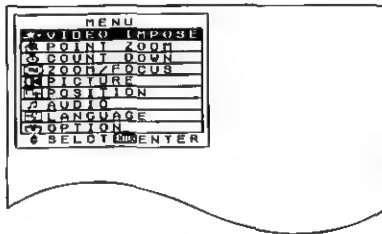 MENU
VIDEO IMPOSE
POINT ZOOM
COUNT DOWN
ZOOM/FOCUS
PICTURE
POSITION
AUDIO
LANGUAGE
OPTION
SELCT ENTER